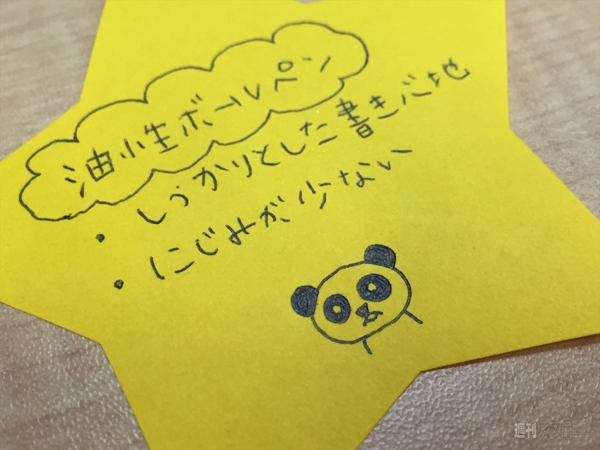 油性ボールペン
・しっかりとした書き心地
・にじみが少ない
週刊